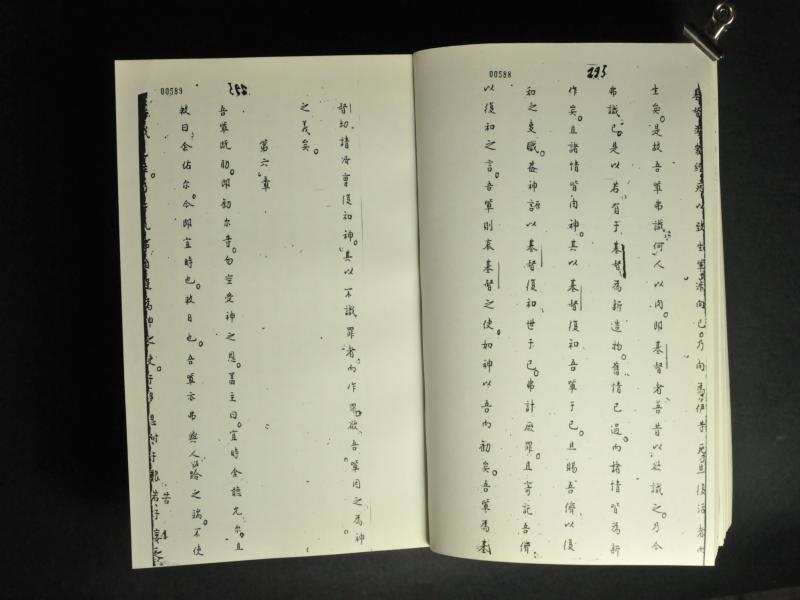 00588
295
基督為衆經死以致生輩派向己乃向為伊昔死且復活者也
生矣。是故吾輩弗識何人以肉。即基督者吾昔以欲識之。乃今
弗識已。是以若有于基督為新造物。舊情已過而諸情皆為新
作矣。且諸情皆由神。其以基督復和吾輩于己。且賜吾儕以復
和之職。蓋神以基督復和世于己。弗計厥罪。且寄託吾儕
以復和之言。吾輩則衰基督之使。如神以吾而勸矣。吾輩為基
00589
督切請汝曹復和神。其以不識罪者而作罪。欲吾輩因之為神
之義矣。
第六章
吾輩既助。即勸尔等。勿空受神之恩。蓋主曰。宜時余聽允尔。且
救日余佑尔。今即宜時也。救日也。吾輩亦弗與人以跲之端。不使